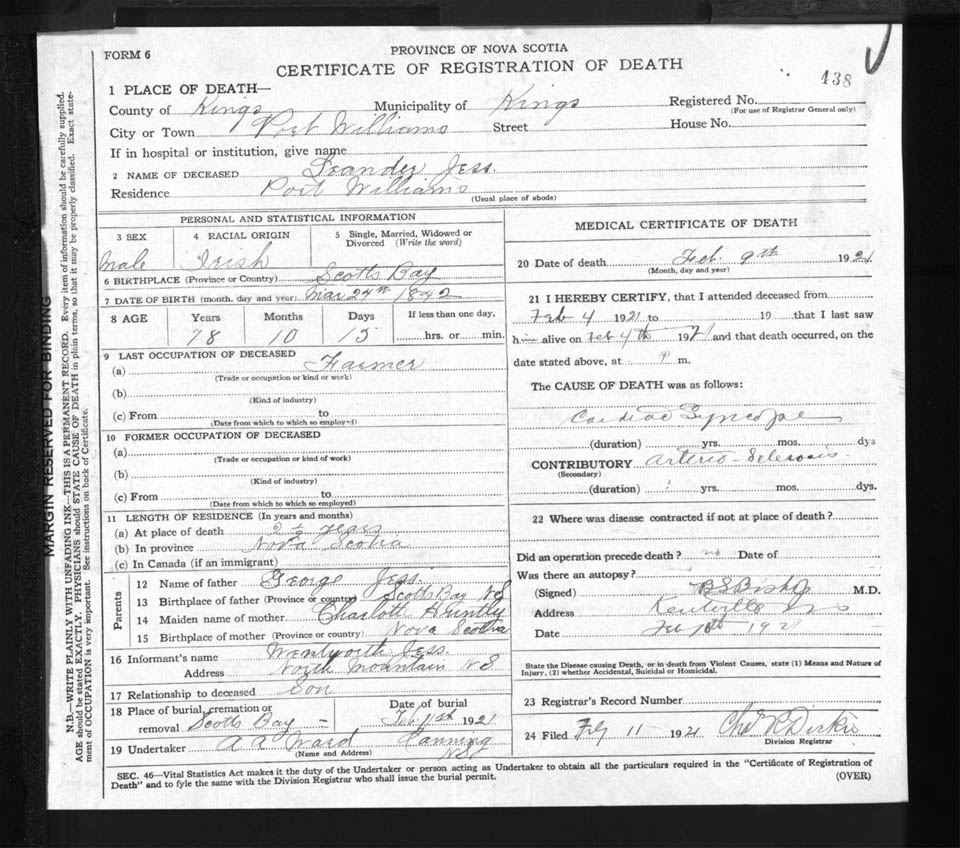 FORM 6
PROVINCE OF NOVA SCOTIA
CERTIFICATE OF REGISTRATION OF DEATH
438
1 PLACE OF DEATH—
County of Kings Municipality of Kings Registered No.
(For use of Registrar General only)
City or Town Port Williams Street House No.
If in hospital or institution, give name
2 NAME OF DECEASED Leander Jess.
Residence Port Williams
(Usual place of abode)
PERSONAL AND STATISTICAL INFORMATION
3 SEX 4 RACIAL ORIGIN 5 Single, Married, Widowed or Divorced (Write the word)
Male Irish
6 BIRTHPLACE (Province or Country) Scotts Bay
7 DATE OF BIRTH (month, day and year) Mar 24th 1842
8 AGE Years Months Days If less than one day,
78 10 15 hrs. or min.
9 LAST OCCUPATION OF DECEASED
(a) Farmer
(Trade or occupation or kind or work)
(b)
(Kind of industry)
(c) From to
(Date from which to which so employed)
10 FORMER OCCUPATION OF DECEASED
(a)
(Trade or occupation or kind of work)
(b)
(Kind of industry)
(c) From to
(Date from which to which so employed)
11 LENGTH OF RESIDENCE (In years and months)
(a) At place of death 2½ years
(b) In province Nova Scotia
(c) In Canada (if an immigrant)
Parents
12 Name of father George Jess.
13 Birthplace of father (Province or country) Scotts Bay NS
14 Maiden name of mother Charlott Huntly
15 Birthplace of mother (Province or country) Nova Scotia
16 Informant's name Wentworth Jess.
Address North Mountain NS
17 Relationship to deceased Son
18 Place of burial, cremation or removal Scotts Bay – Date of burial Feb 11st 1921
19 Undertaker A A Ward Canning NS
(Name and Address)
MEDICAL CERTIFICATE OF DEATH
20 Date of death Feb. 9th 1921
(Month, day and year)
21 I HEREBY CERTIFY, that I attended deceased from
Feb 4 1921 to 19 that I last saw
him alive on Feb 4th 1921 and that death occurred, on the
date stated above, at P m.
The CAUSE OF DEATH was as follows:
Cardiac Syncope
(duration) yrs. mos. dys
CONTRIBUTORY Arterio-Sclerosis
(Secondary)
(duration) ? yrs. mos. dys.
22 Where was disease contracted if not at place of death?
Did an operation precede death? no Date of
Was there an autopsy?
(Signed) B S Bishop M.D.
Address Kentville NS
Date Feb 10th 1921
State the Disease causing Death, or in death from Violent Causes, state (1) Means and Nature of
Injury, (2) whether Accidental, Suicidal or Homicidal.
23 Registrar's Record Number
24 Filed Feby 11 1921 Chas R Dickie
Division Registrar
SEC. 46—Vital Statistics Act makes it the duty of the Undertaker or person acting as Undertaker to obtain all the particulars required in the "Certificate of Registration of
Death" and to fyle the same with the Division Registrar who shall issue the burial permit.
(OVER)
MARGIN RESERVED FOR BINDING
N.B.—WRITE PLAINLY WITH UNFADING INK—THIS IS A PERMANENT RECORD. Every item of information should be carefully supplied.
AGE should be stated EXACTLY. PHYSICIANS should STATE CAUSE OF DEATH in plain terms, so that it may be properly classified. Exact state-
ment of OCCUPATION is very important. See instructions on back of Certificate.